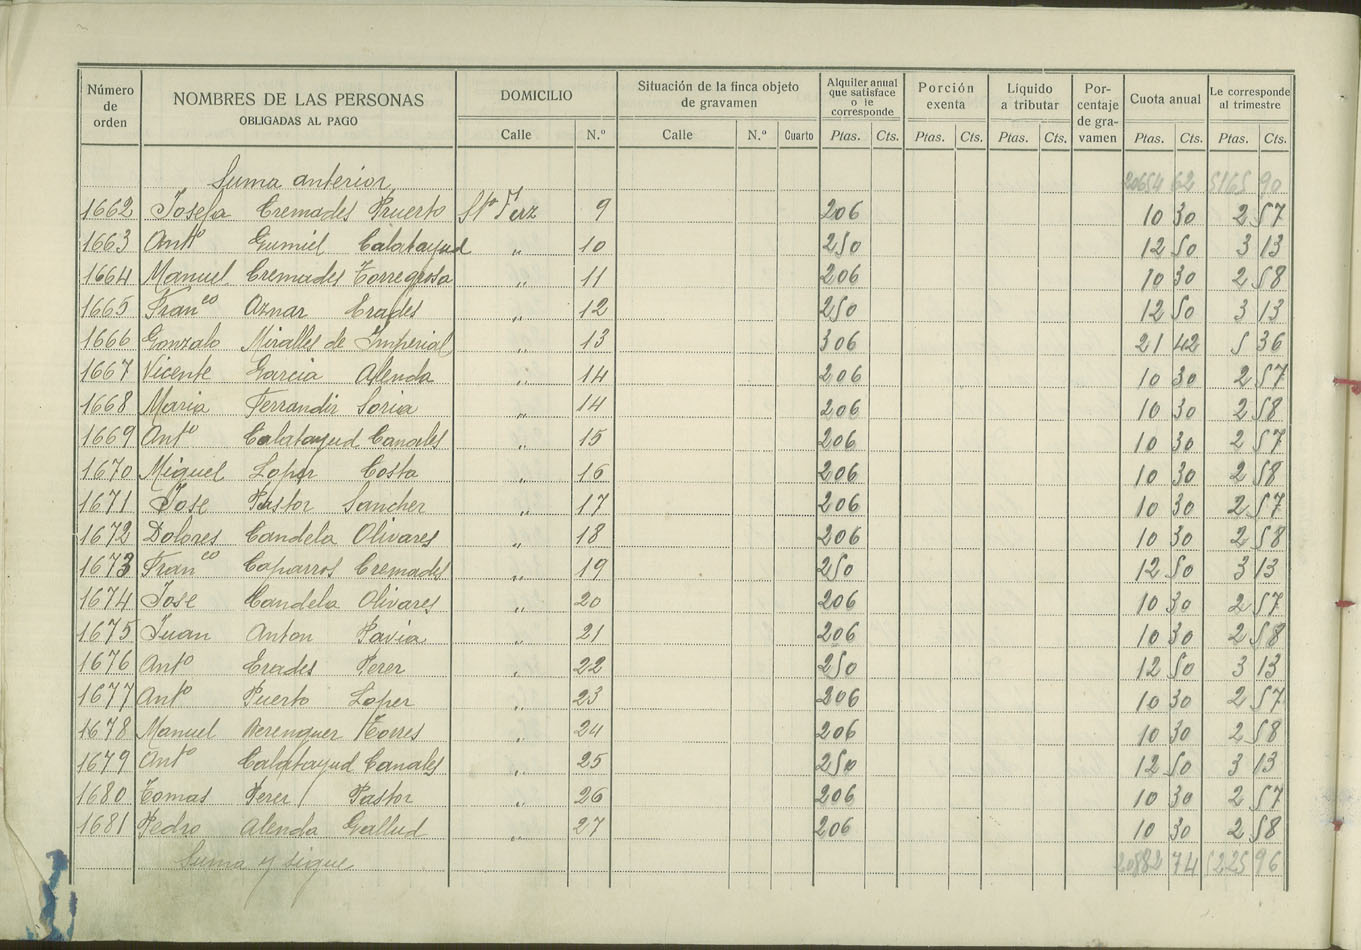 Número de orden | NOMBRES DE LAS PERSONAS OBLIGADAS AL PAGO | DOMICILIO | Situación de la finca objeto de gravamen | Alquiler anual que satisface o le corresponde | Porción exenta | Líquido a tributar | Por-centaje de gra-vamen | Cuota anual | Le corresponde al trimestre
Calle | N.º | Calle | N.º | Cuarto | Ptas. | Cts. | Ptas. | Cts. | Ptas. | Cts. | Ptas. | Cts. | Ptas. | Cts.
Suma anterior 20654 62 5165 90
1662 Josefa Cremades Pruerto 9 206 10 30 2 57
1663 Antº Gumiel Calatayud " 10 250 12 50 3 13
1664 Manuel Cremades Torregrosa " 11 206 10 30 2 58
1665 Franco Aznar Erades " 12 250 12 50 3 13
1666 Gonzalo Miralles de Imperial " 13 306 21 42 5 36
1667 Vicente Garcia Alenda " 14 206 10 30 2 57
1668 Maria Ferrandiz Soria " 14 206 10 30 2 58
1669 Antº Calatayud Canales " 15 206 10 30 2 57
1670 Miguel Lopez Costa " 16 206 10 30 2 58
1671 Jose Pastor Sanchez " 17 206 10 30 2 57
1672 Dolores Candela Olivares " 18 206 10 30 2 58
1673 Franco Caparros Cremades " 19 250 12 50 3 13
1674 Jose Candela Olivares " 20 206 10 30 2 57
1675 Juan Anton Pavia " 21 206 10 30 2 58
1676 Antº Erades Perez " 22 250 12 50 3 13
1677 Antº Puerto Lopez " 23 206 10 30 2 57
1678 Manuel Berenguer Torres " 24 206 10 30 2 58
1679 Antº Calatayud Canales " 25 250 12 50 3 13
1680 Tomas Perez Pastor " 26 206 10 30 2 57
1681 Pedro Alenda Gallud " 27 206 10 30 2 58
Suma y sigue 20882 74 5225 96